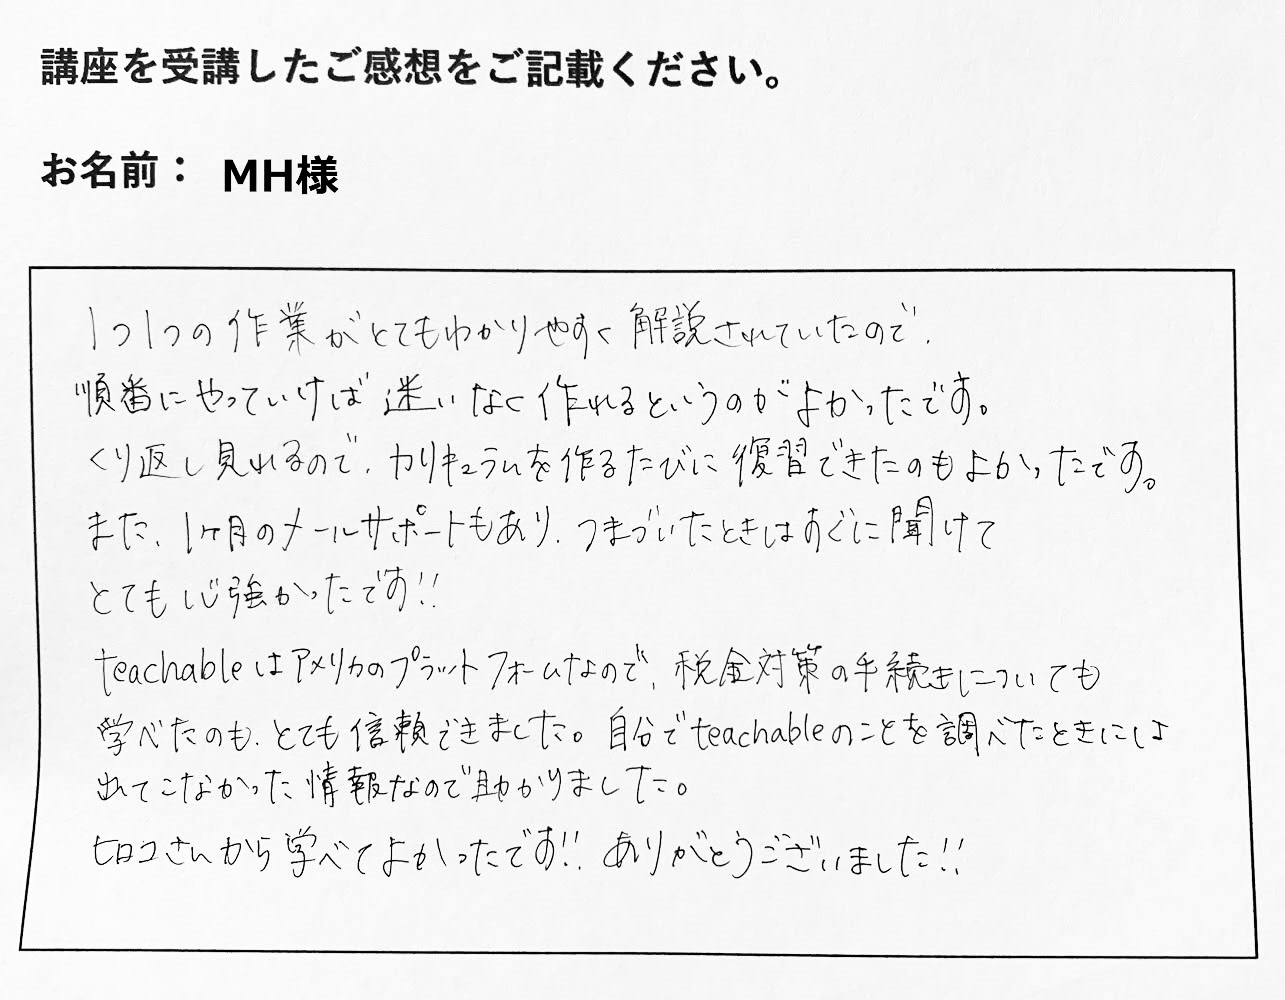 講座を受講したご感想をご記載ください。
お名前： MH様
1つ1つの作業がとてもわかりやすく解説されていたので、
順番にやっていけば迷いなく作れるというのがよかったです。
くり返し見れるので、カリキュラムを作るたびに復習できたのもよかったです。
また、1ヶ月のメールサポートもあり、つまづいたときはすぐに聞けて
とても心強かったです!!
teachableはアメリカのプラットフォームなので、税金対策の手続きについても
学べたのも、とても信頼できました。自分でteachableのことを調べたときには
出てこなかった情報なので助かりました。
ヒロコさんから学べてよかったです!! ありがとうございました!!